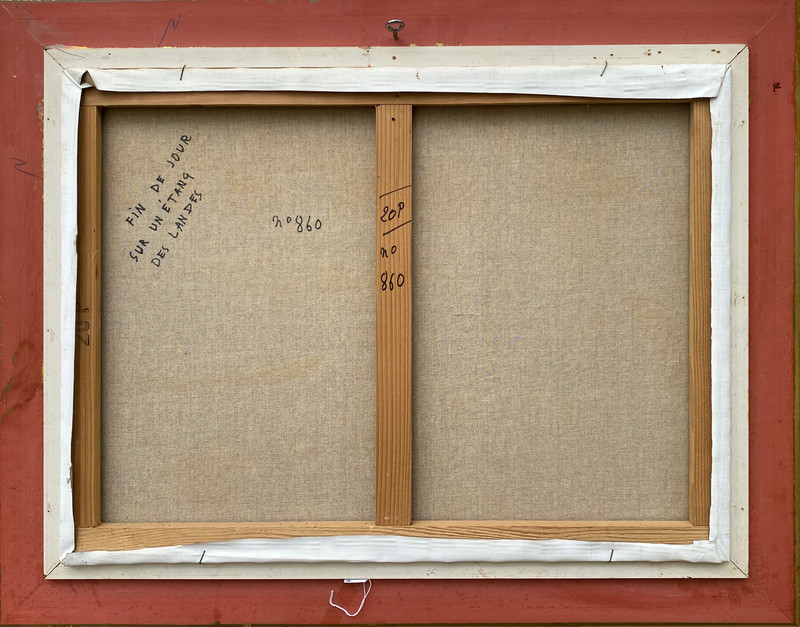 FIN DE JOUR
SUR UN ÉTANG
DES LANDES
n°860
20P
no
860